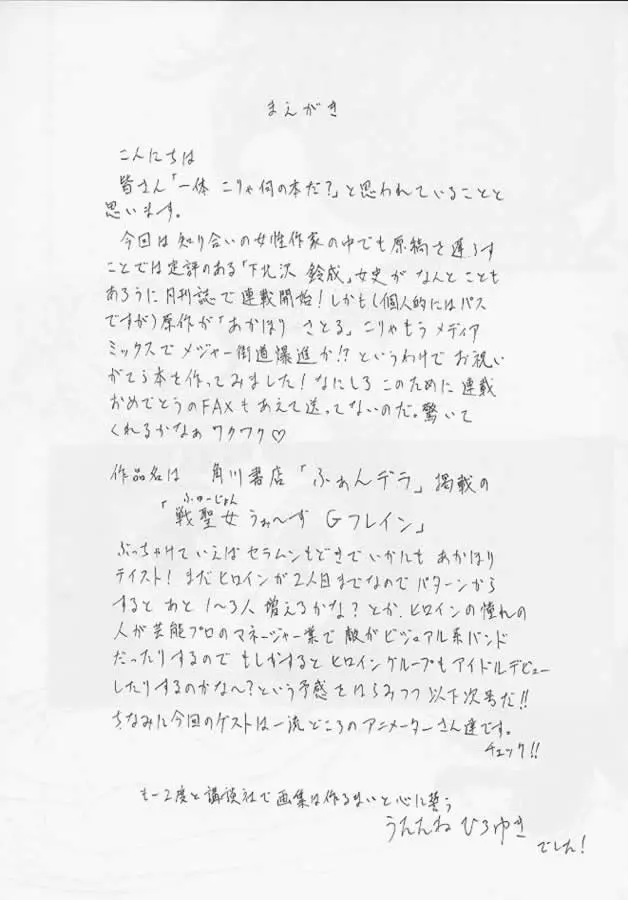 まえがき
こんにちは
皆さん「一体 こりゃ何の本だ?」と思われていることと
思います。
今回は知り合いの女性作家の中でも原稿を遅らす
ことでは定評のある「下北沢 鈴成」女史が なんと ことも
あろうに 月刊誌で連載開始!しかも(個人的にはパス
ですが)原作が「あかほり さとる」こりゃもう メディア
ミックスで メジャー街道爆進か!?というわけで お祝い
がてら本を作ってみました!なにしろ このために 連載
おめでとうのFAXもあえて送ってないのだ。驚いて
くれるかなぁ ワクワク♡
作品名は 角川書店「ふぁんデラ」掲載の
ふゅーじょん
「戦聖女 うぉ〜ず Gフレイン」
ぶっちゃけていえばセラムンもどきでいかにも あかほり
テイスト!まだヒロインが2人目までなのでパターンから
すると あと 1〜3人 増えるかな?とか、ヒロインの憧れの
人が芸能プロのマネージャー業で 敵がビジュアル系バンド
だったりするので もしかすると ヒロイングループもアイドルデビュー
したりするのかな〜?という予感をはらみつつ 以下次号だ!!
ちなみに今回のゲストは一流どころのアニメーターさん達です。
チェック!!
もー2度と講談社で画集は作るまいと心に誓う
うたたね ひろゆき
でした!